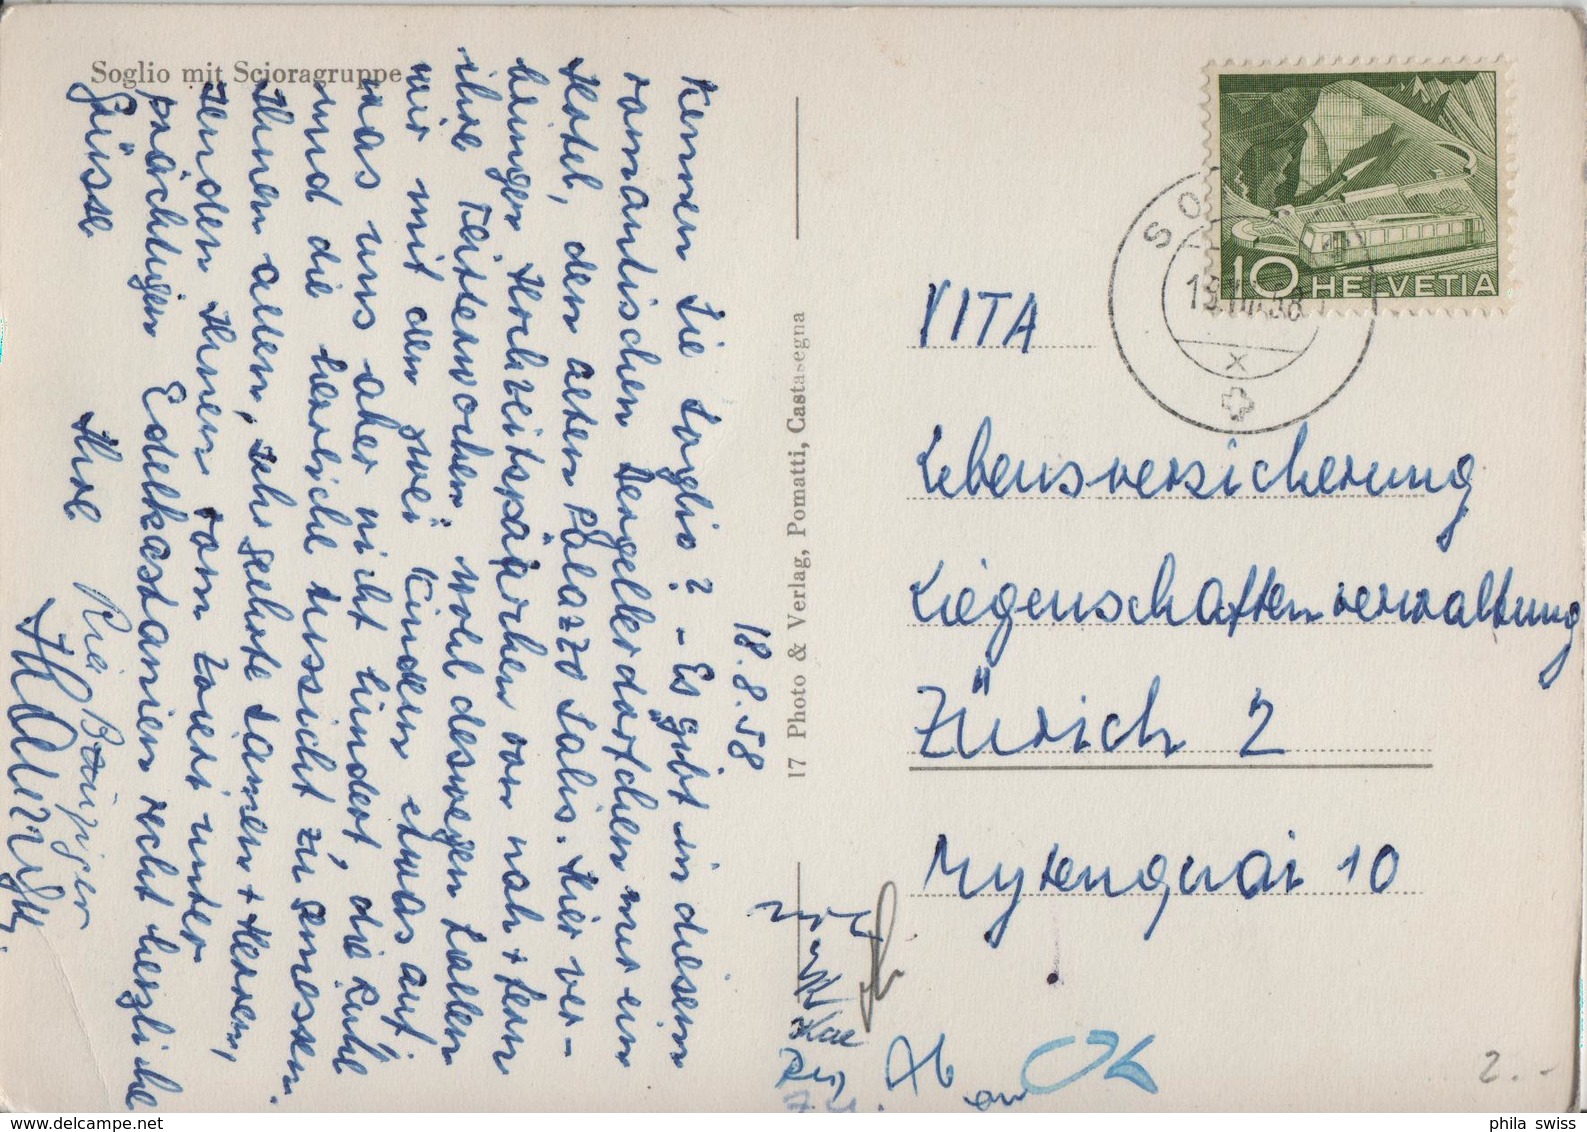 Soglio mit Scioragruppe
18.8.58
Kennen Sie Soglio? - Es gibt in diesem
romantischen Bergellerdörfchen nur ein
Hotel, den alten Palazzo Salis. Hier ver-
bringen Hochzeitspärchen von nah + fern
ihre Flitterwochen. Wohl deswegen fallen
wir mit den zwei Kindern etwas auf,
was uns aber nicht hindert, die Ruhe
und die herrliche Aussicht zu geniessen.
Ihnen allen, sehr geehrte Damen + Herren,
senden Ihnen vom Zauber unter
prächtigen Edelkastanien recht herzliche
Grüsse Ihre
17 Photo & Verlag, Pomatti, Castasegna
10 HELVETIA
VITA
Lebensversicherung
Liegenschaftenverwaltung
Zürich 2
Mythenquai 10
2.-
phila swiss